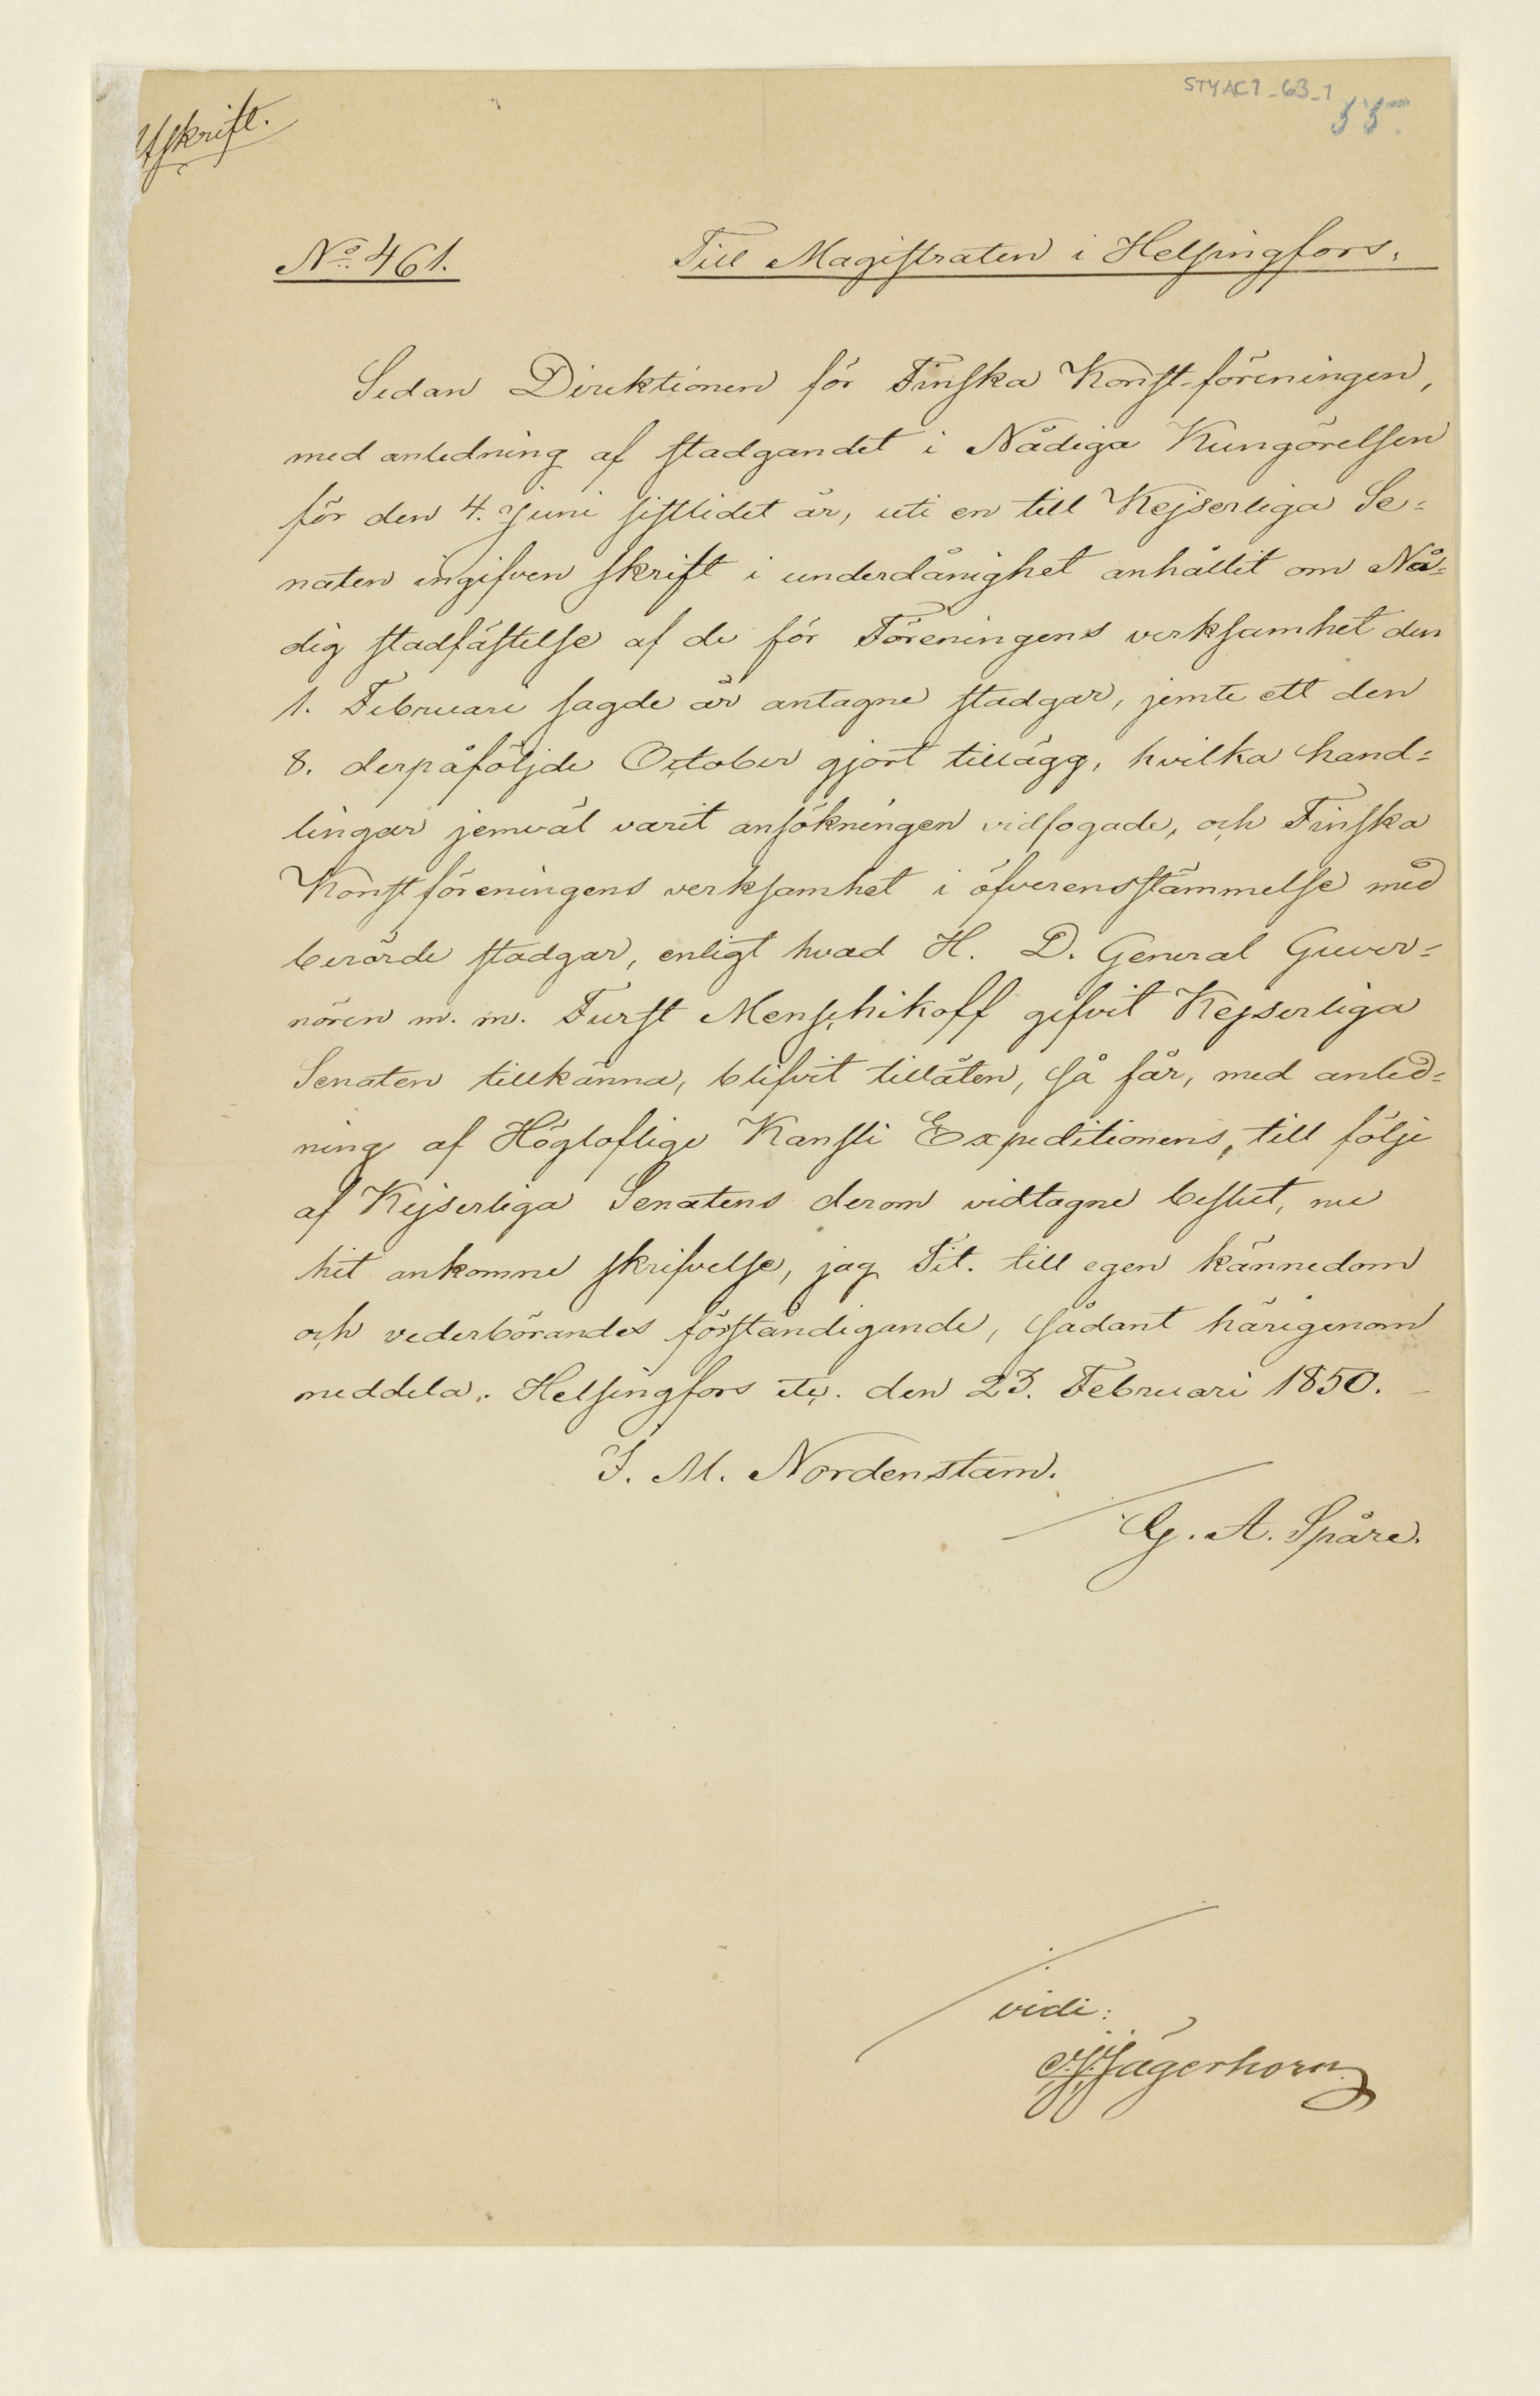 STYAC1_63_1
55.
Afskrift.
No 461.
Till Magistraten i Helsingfors.
Sedan Direktionen för Finska Konst-föreningen,
med anledning af stadgandet i Nådiga Kungörelsen
för den 4. Juni sistlidet år, uti en till Kejserliga Se=
naten ingifven skrift i underdånighet anhållit om Nå=
dig stadfästelse af de för Föreningens verksamhet den
1. Februari sagde år antagne stadgar, jemte ett den
8. derpåföljde October gjort tillägg, hvilka hand=
lingar jemväl varit ansökningen vidfogade, och Finska
Konstföreningens verksamhet i öfverensstämmelse med
berörde stadgar, enligt hvad H. D. General Guver=
nören m. m. Furst Menschikoff gifvit Kejserliga
Senaten tillkänna, blifvit tillåten, så får, med anled=
ning af Högloflige Kansli Expeditionens, till följe
af Kejserliga Senatens derom vidtagne beslut, nu
hit ankomne skrifvelse, jag Tit. till egen kännedom
och vederbörandes förständigande, sådant härigenom
meddela. Helsingfors etc. den 23. Februari 1850.
J. M. Nordenstam.
G. A. Spåre.
vidi:
Jägerhorn